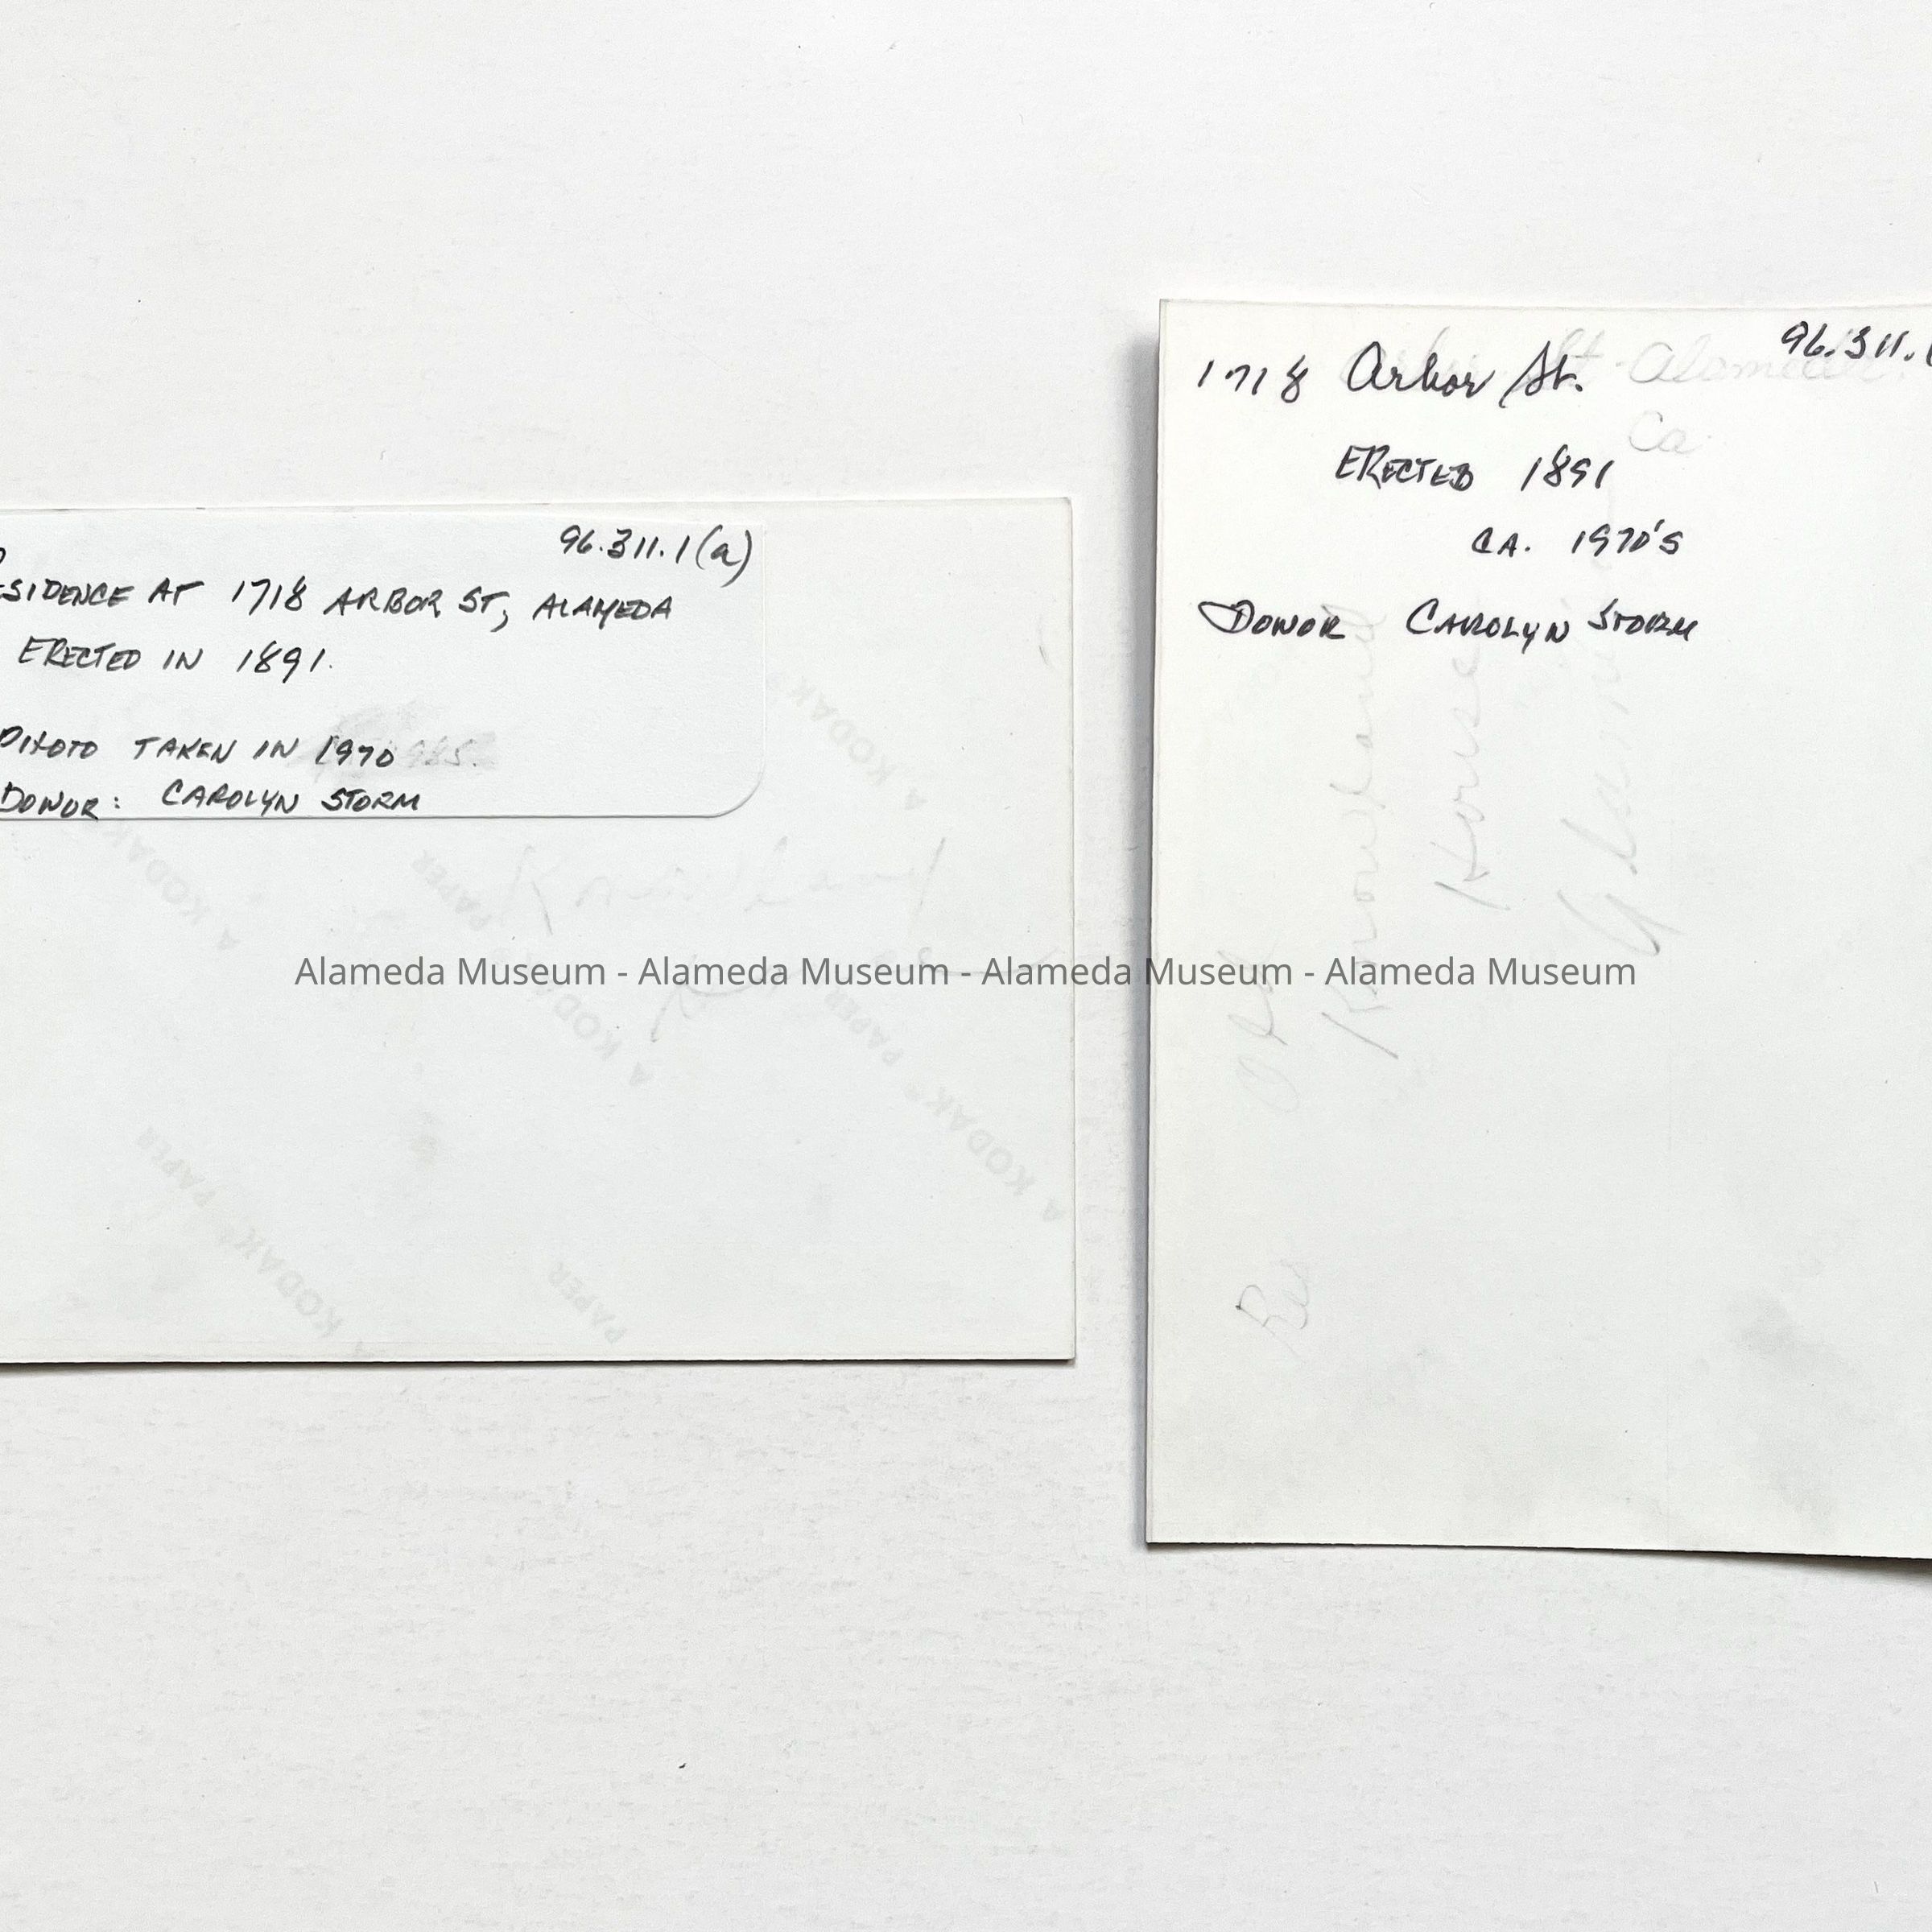 96.311.1(a)
ESIDENCE AT 1718 ARBOR ST, ALAMEDA
ERECTED IN 1891.
PHOTO TAKEN IN 1970
DONOR: CAROLYN STORM
A KODAK
A KODAK
PAPER
A KODAK PAPER
A KODAK PAPER
A KODAK PAPER
PAPER
96.311.
1718 Arbor St.
Alameda
Ca
ERECTED 1891
CA. 1970'S
DONOR CAROLYN STORM
Old
Knowland
House
Res
Alameda Museum - Alameda Museum - Alameda Museum - Alameda Museum